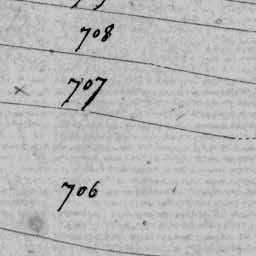 708
707
706